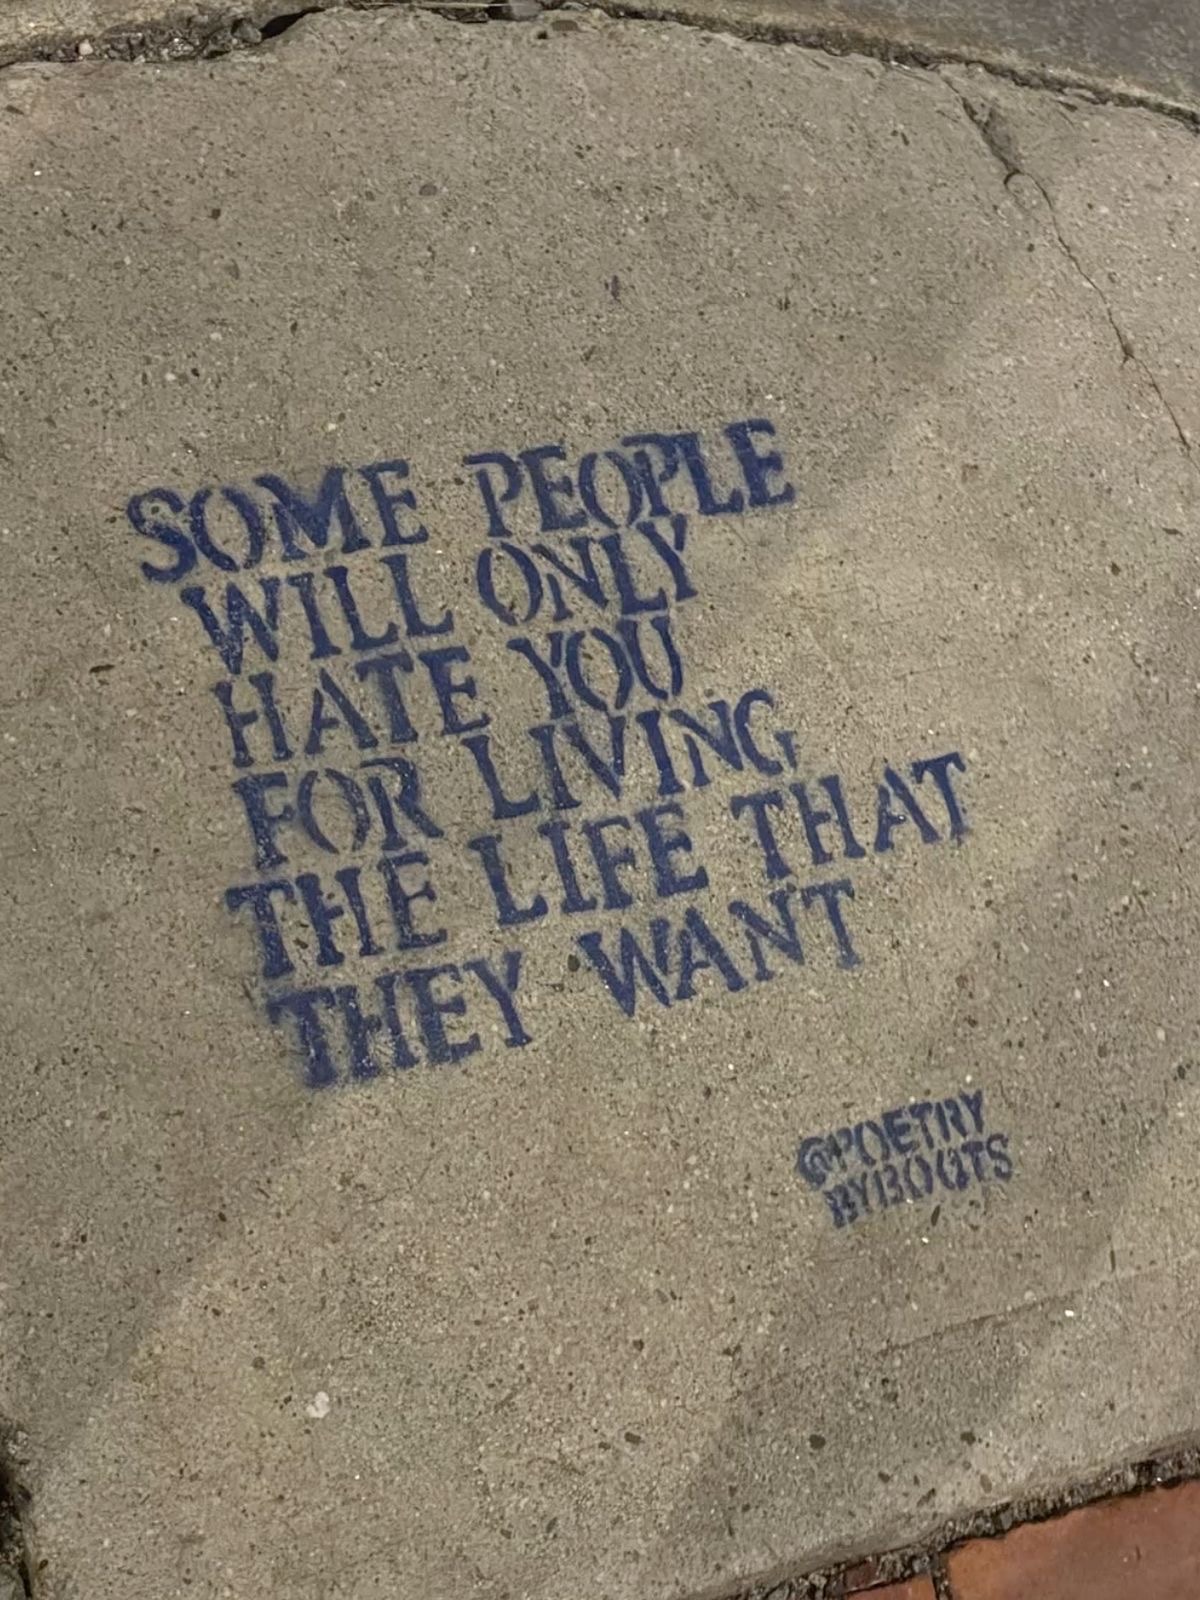 SOME PEOPLE
WILL ONLY
HATE YOU
FOR LIVING
THE LIFE THAT
THEY WANT
@POETRY
BYBOOTS